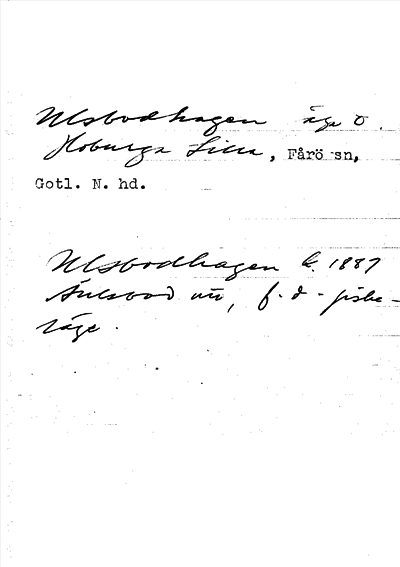 Ulsbodhagen äga ö.
Hoburga Lilla, Fårö sn,
Gotl. N. hd.
Ulsbodhagen k. 1887
Äulsbod uti, f. d. fiske-
läge.